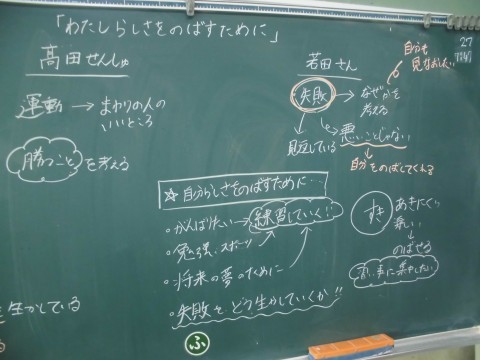 「わたしらしさをのばすために」
高田せんしゅ
運動 → まわりの人の
いいところ
勝つこと を考える
若田さん
自分を
見なおしたい
27
失敗 → なぜかを
考える
見直している
悪いことじゃない
自分をのばしてくれる
☆自分らしさをのばすために…
・がんばりたい → 練習していく!!
・勉強・スポーツ
・将来の夢のために
・失敗をどう生かしていくか!!
すき
あきにくい
↓
のばせる
生かしている
ふ